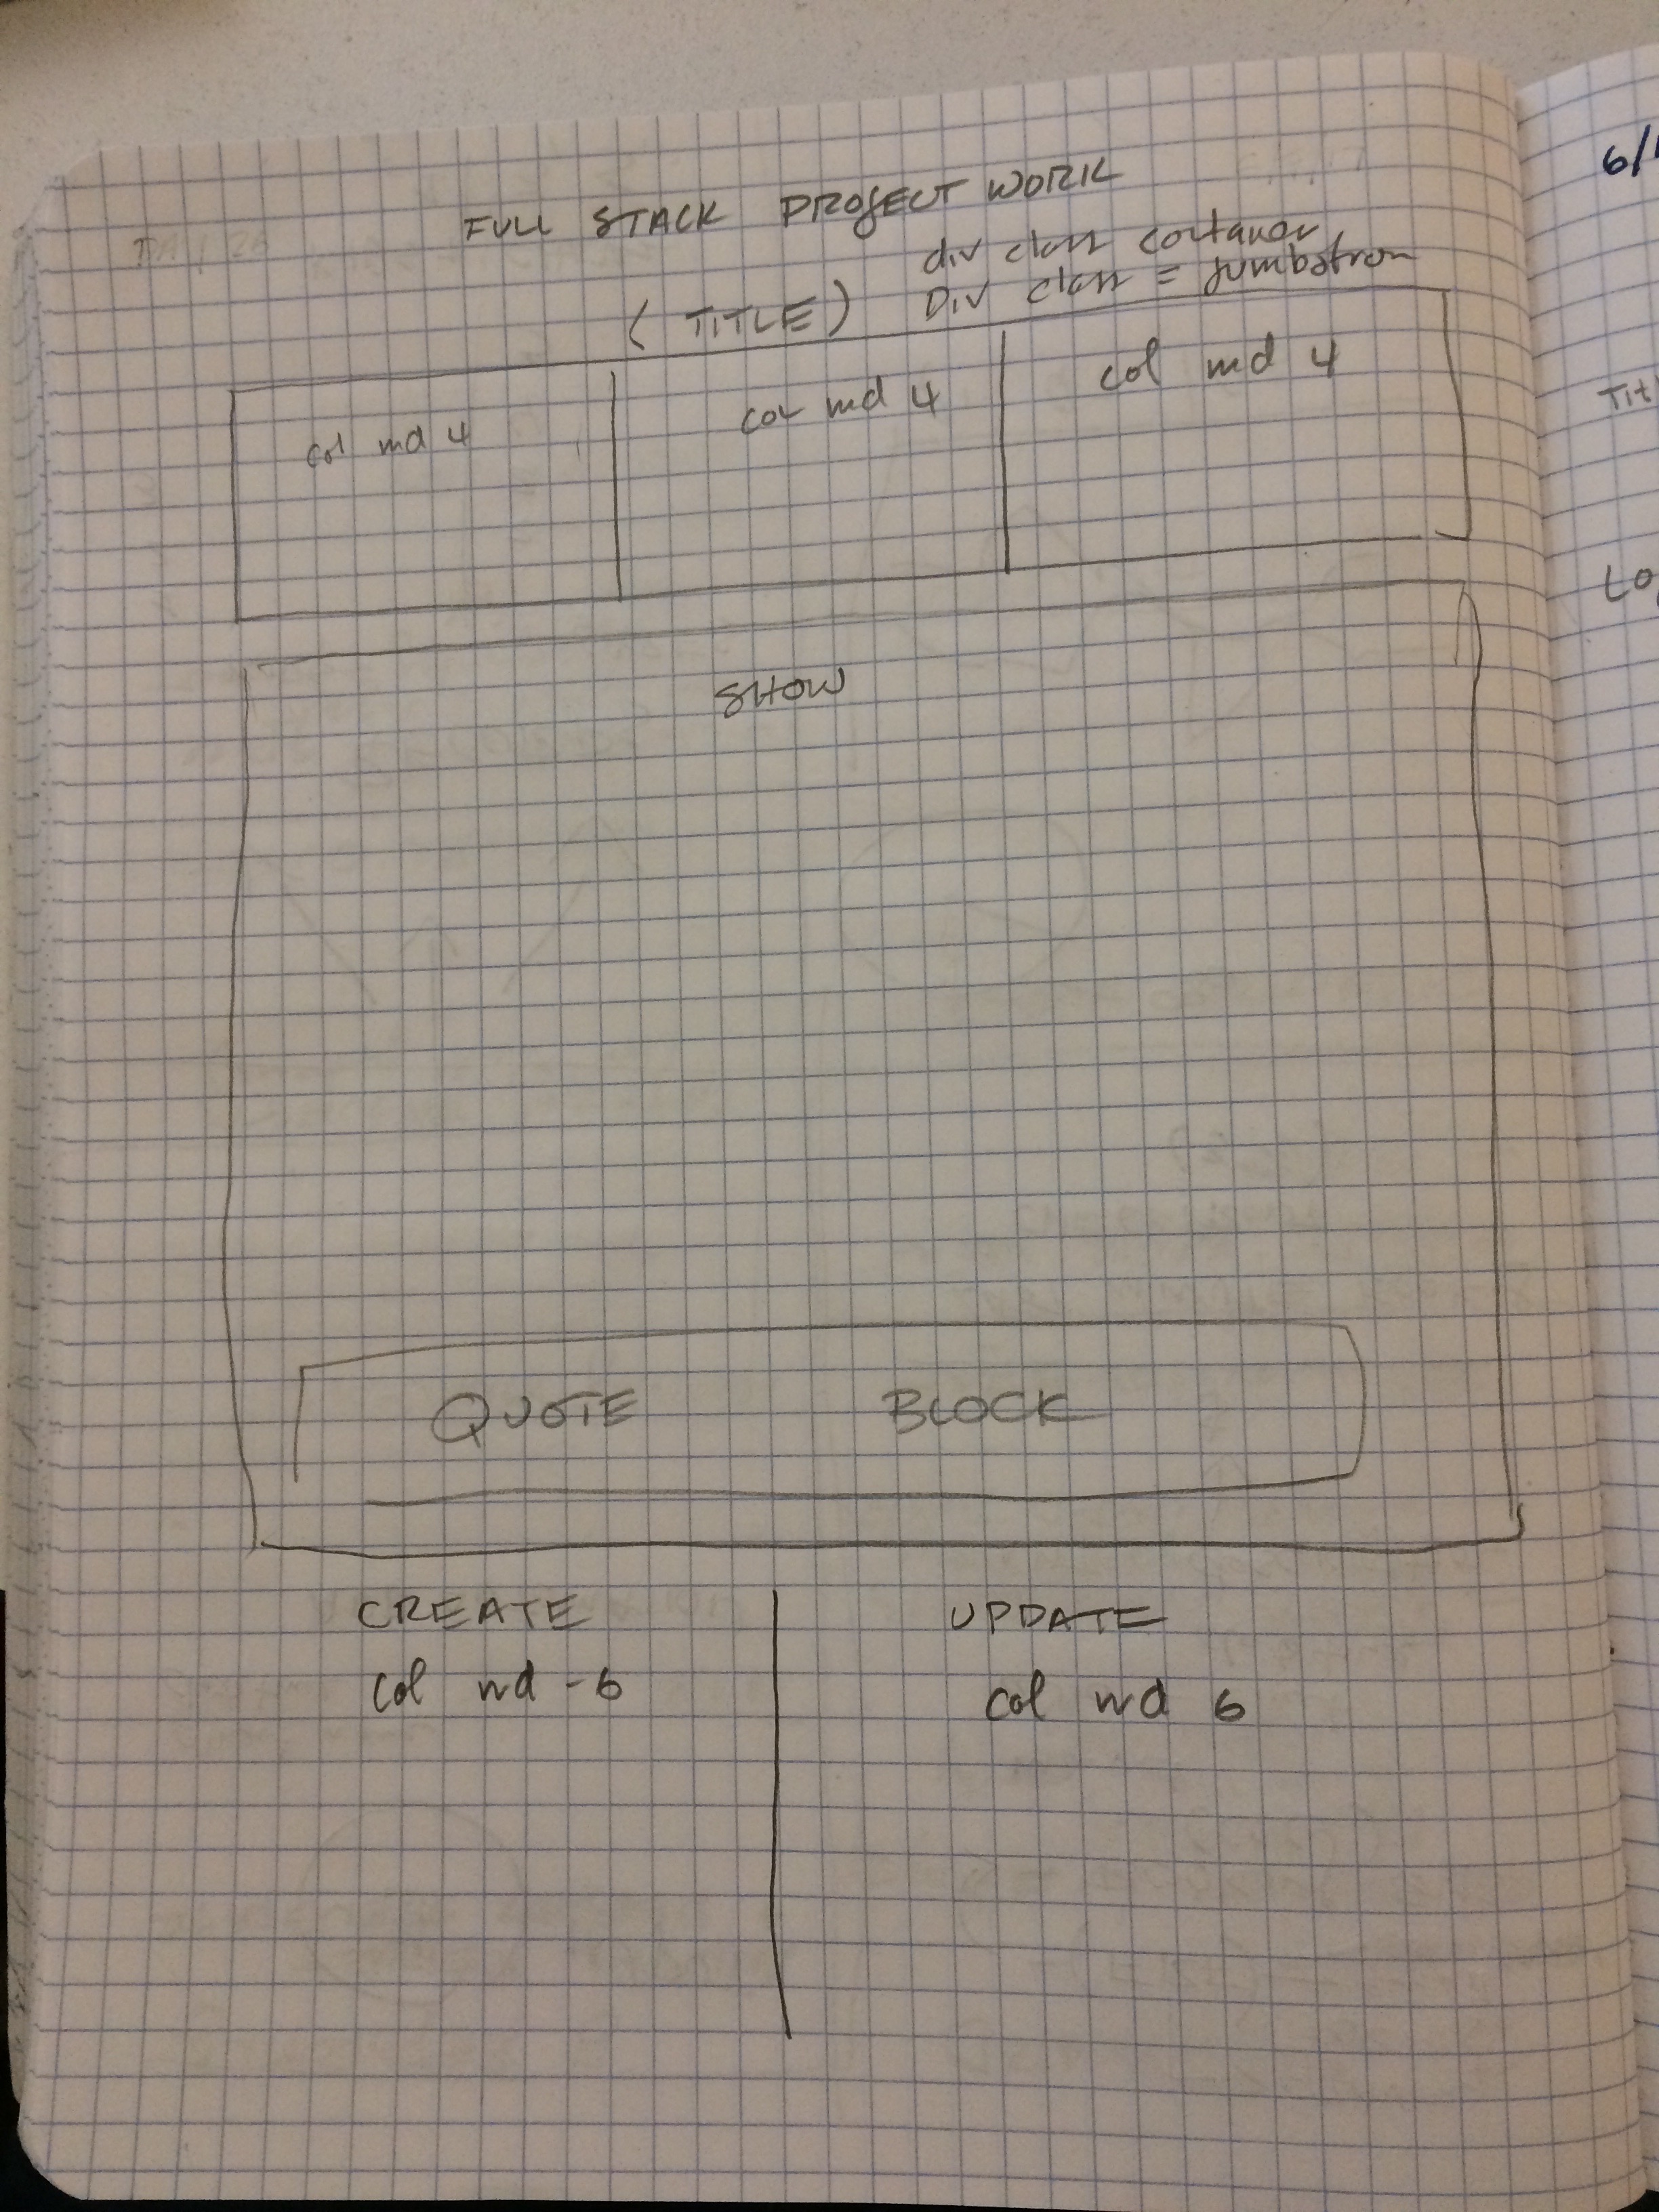 FULL STACK PROJECT WORK
div class container
(TITLE) Div class = jumbotron
col md 4 col md 4 col md 4
SHOW
QUOTE BLOCK
CREATE UPDATE
col md -6 col md 6
6/1
Tit
Lo